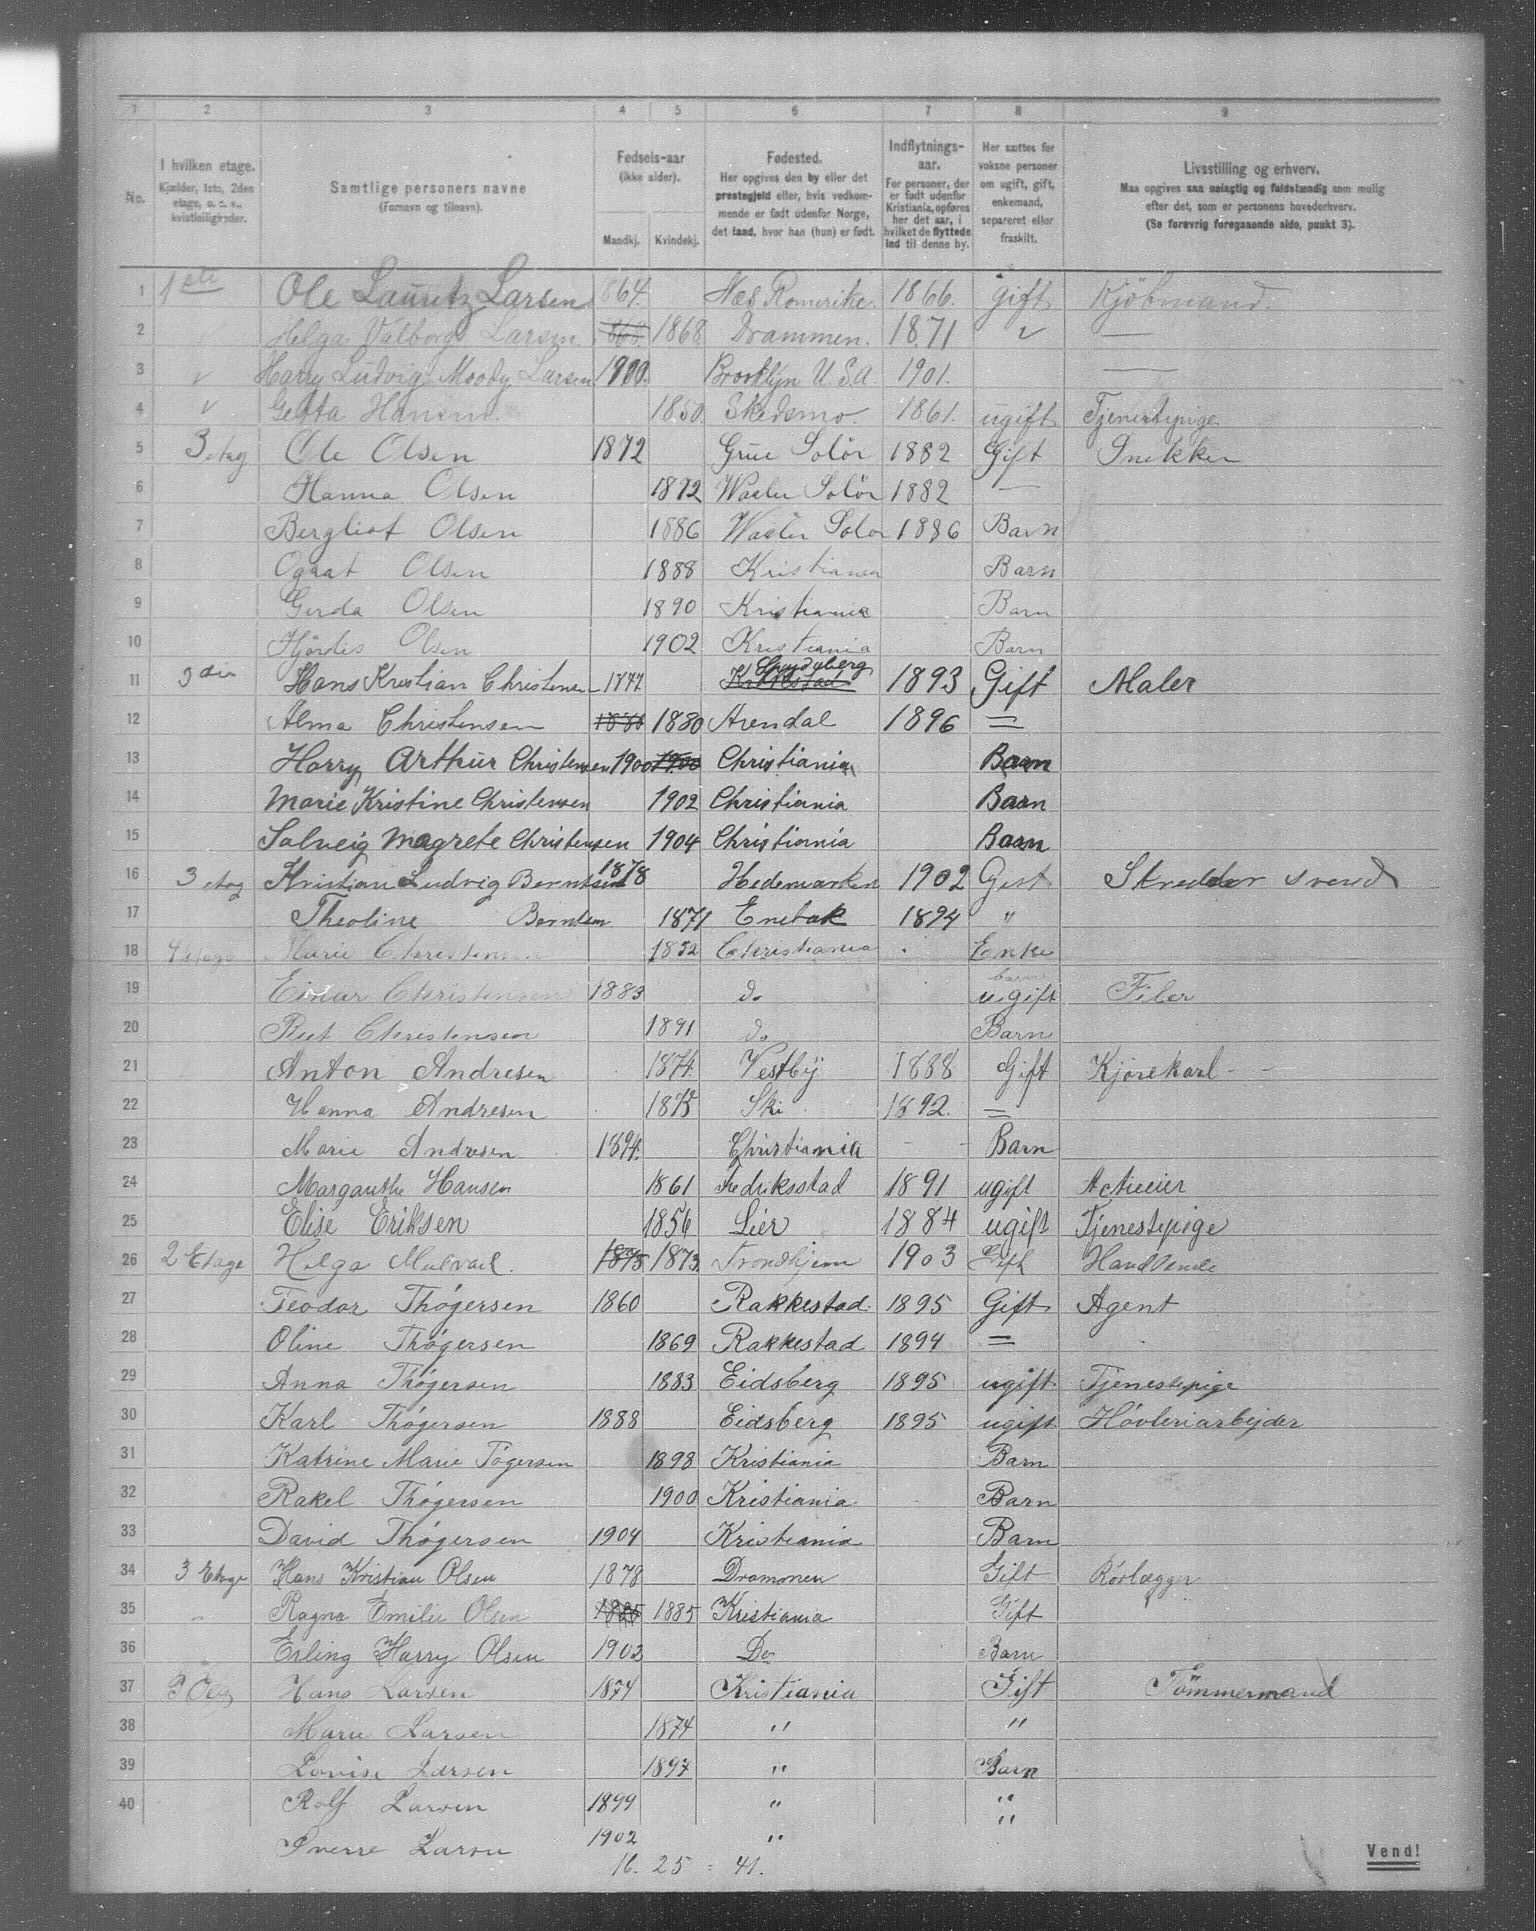 1 2 3 4 5 6 7 8 9
No. I hvilken etage. Kjælder, 1ste, 2den etage, o. s. v., kvistleiligheder. Samtlige personers navne (Fornavn og tilnavn). Fødsels-aar (ikke alder). Mandkj. Kvindekj. Fødested. Her opgives den by eller det prestegjeld eller, hvis vedkommende er født udenfor Norge, det land, hvor han (hun) er født. Indflytnings-aar. For personer, der er født udenfor Kristiania, opføres her det aar, i hvilket de flyttede ind til denne by. Her sættes for voksne personer om ugift, gift, enkemand, separeret eller fraskilt. Livsstilling og erhverv. Maa opgives saa nøiagtig og fuldstændig som mulig efter det, som er personens hovederhverv. (Se forøvrig foregaaende side, punkt 3).
1 1ste Ole Lauritz Larsen 1864. Næs Romerike. 1866. Gift Kjöbmand.
2 Helga Valborg Larsen 1868 1868 Drammen. 1871 " —
3 " Harry Ludvig Moody Larsen 1900. Brooklyn U.S.A. 1901. —
4 " Getta Hansen. 1850. Skedsmo. 1861. ugift Tjenestepige
5 3 etag Ole Olsen 1872 Grue Solör 1882 Gift Snekker
6 Hanna Olsen 1872 Vaaler Solör 1882 —
7 Bergliot Olsen 1886 Vaaler Solør 1886 Barn
8 Olsen 1888 Kristiania Barn
9 Gerda Olsen 1890 Kristiania Barn
10 Hjördis Olsen 1902 Kristiania Barn
11 3die Hans Kristian Christensen 1877 Spydeberg 1893 Gift Maler
12 Alma Christensen 1880 1880 Arendal 1896 =
13 Harry Arthur Christensen 1900 1900 Christiania Barn
14 Marie Kristine Christensen 1902 Christiania Barn
15 Solveig Magrete Christensen 1904 Christiania Barn
16 3 etag Kristian Ludvig Berntsen 1878 Hedemarken 1902 Gift Skredder svend
17 Theoline Berntsen 1871 Enebak 1894 "
18 4 etage Marie Christensen 1852 Christiania Enke
19 Einar Christensen 1883 do ugift Filer
20 Rut Christensen 1891 do Barn
21 Anton Andresen 1874. Vestby 1888 Gift Kjørekarl
22 Hanna Andresen 1875 Ski 1892. =
23 Marie Andresen 1894. Christiania Barn
24 Margarethe Hansen 1861 Fredriksstad 1891 ugift
25 Elise Eriksen 1856 Lier 1884 ugift Tjenestepige
26 2 Etage Helga Mulvad. 1873 1873. Trondhjem 1903 Gift Handlende
27 Teodor Thógersen 1860 Rakkestad 1895 Gift Agent
28 Oline Thógersen 1869 Rakkestad 1894 =
29 Anna Thógersen 1883 Eidsberg 1895 ugift Tjenestepige
30 Karl Thógersen 1888 Eidsberg 1895 ugift Hóvleriarbejder
31 Katrine Marie Tógersen 1898 Kristiania Barn
32 Rakel Thógersen 1900 Kristiania Barn
33 David Thógersen 1904 Kristiania Barn
34 3 Etage Hans Kristian Olsen 1878 Drammen Gift Rórlægger
35 " Ragna Emilie Olsen 1885 1885 Kristiania Gift
36 Erling Harry Olsen 1903 Do Barn
37 3 Etg Hans Larsen 1874 Kristiania Gift Tömmermand
38 Marie Larsen 1874 " "
39 Lovise Larsen 1897 " Barn
40 Rolf Larsen 1899 " "
Sverre Larsen 1902 " "
16. 25 = 41.
Vend!